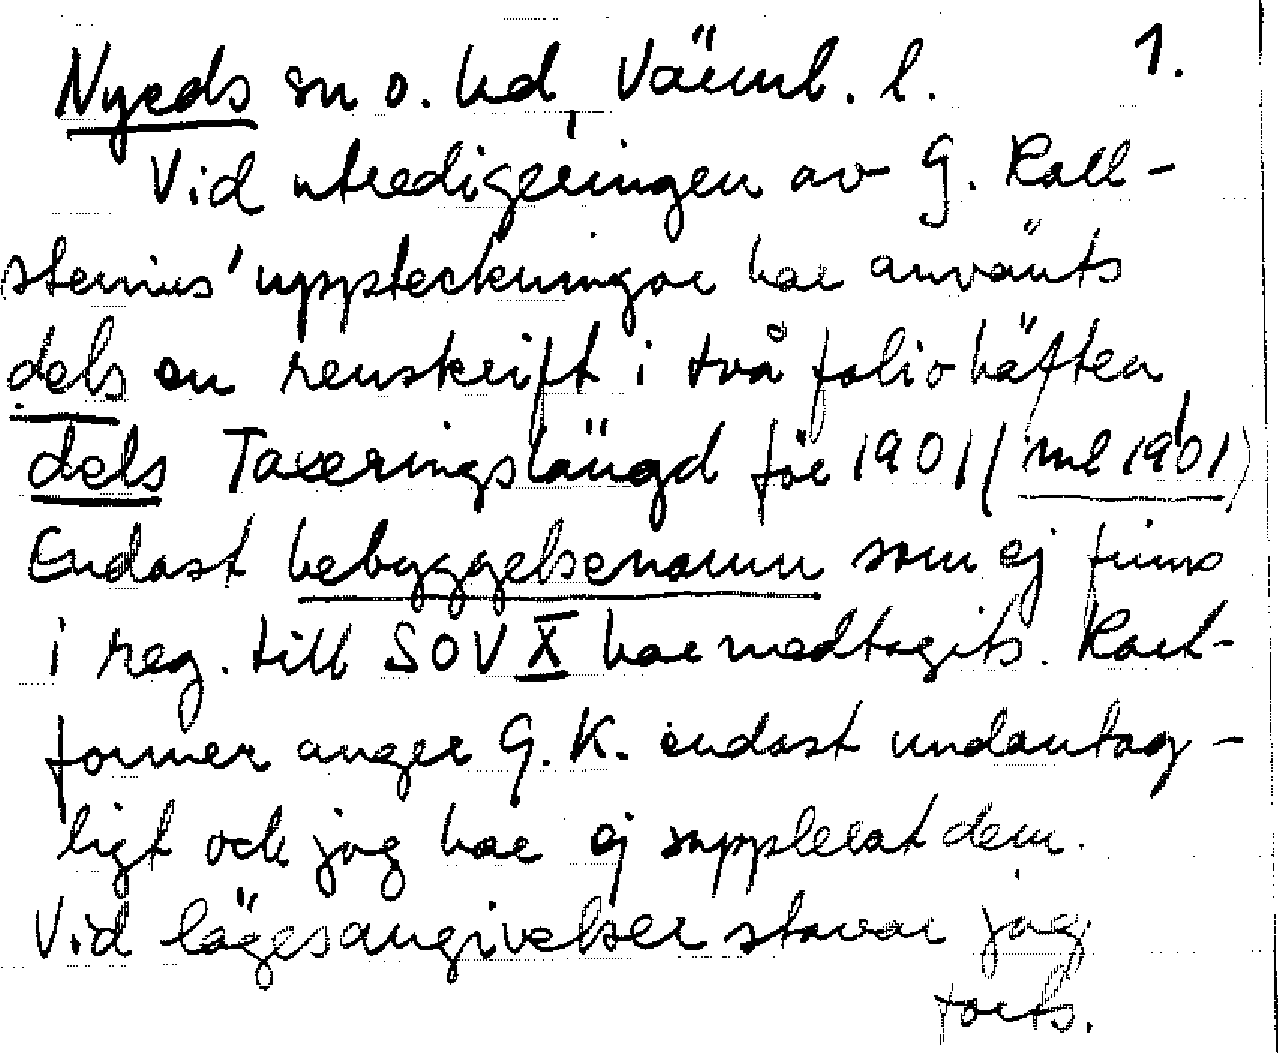 1.
Nyeds sn o. hd, Värml. l.
Vid utredigeringen av G. Kall-
stenius' uppteckningar har använts
dels en renskrift i två foliohäften
dels Taxeringslängd för 1901 (ml 1901)
Endast bebyggelsenamn som ej finns
i reg. till SOV X har medtagits. Kart-
former anger G.K. endast undantag-
ligt och jag har ej supplerat dem.
Vid lägesangivelser stavar jag
forts.